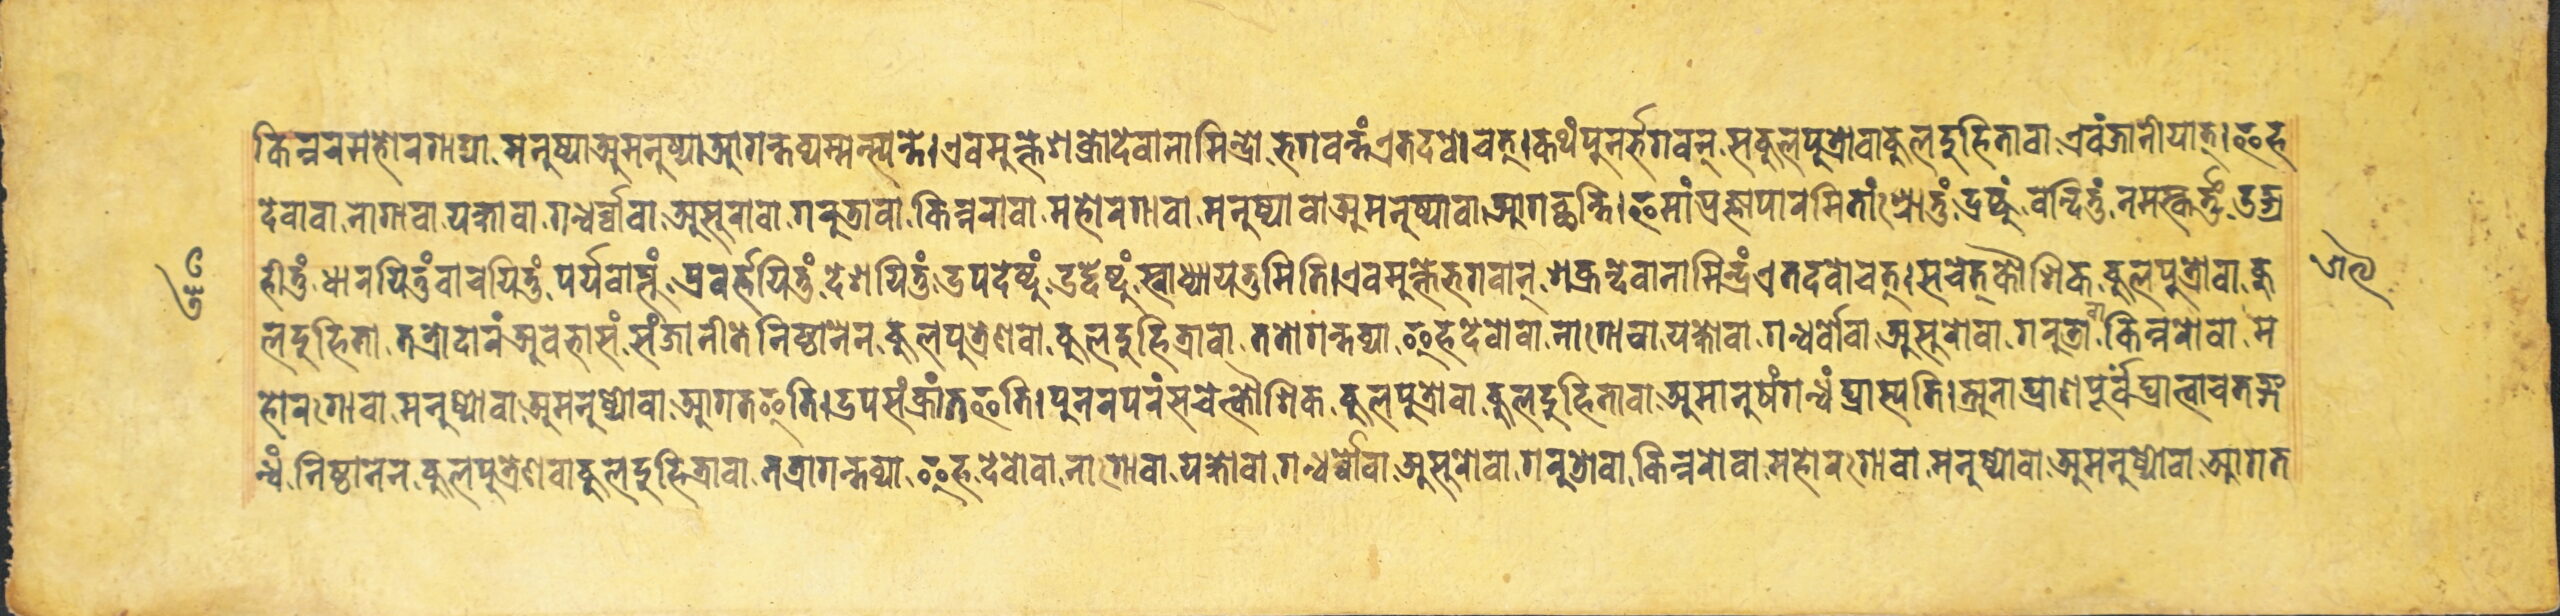 किन्नरमहोरगाद्या मनुष्याअमनुष्याआगन्तव्यम्मन्स्यन्ते।एवमुक्तेशक्रोदेवानामिन्द्रो भगवन्तंएतदवोचत्।कथंपुनर्भगवन् सकुलपुत्रोवाकुलदुहितावा एवंजानीयात्।इह
देवावा नागावा यक्षावा गन्धर्व्वावा असुरावा गरुडावा किन्नरावा महोरगावा मनुष्यावाअमनुष्यावा आगच्छन्ति।इमांप्रज्ञापारमितांश्रोतुं द्रष्टुं वन्दितुं नमस्कर्त्तुं उद्ग्र
हीतुं धारयितुंवाचयितुं पर्यवाप्तुं प्रवर्त्तयितुं देशयितुं उपदेष्टुं उद्देष्टुं स्वाध्यायतुमिति।एवमुक्तेभगवान् शक्रन्देवानामिन्द्रंएतदवोचत्।सचेत्कौशिक कुलपुत्रोवा कु
लदुहिता तत्रोदारंअवभासं संजानीते निष्ठानेन कुलपुत्रेणवा कुलदुहित्रावा ततोगन्तव्या इहदेवोवा नागोवा यक्षोवा गन्धर्वोवा असुरोवा गरुडोवा किन्नरोवा म
होरगोवा मनुष्योवा अमनुष्योवा आगतइति।उपसंक्रांतइति।पुनरपरंसचेत्कौशिक कुलपुत्रोवा कुलदुहितावा अमानुषंगन्धं घ्रास्यति।अनाघ्राणपूर्वंघ्रात्वाचतङ्ग
न्धं निष्ठानेन कुलपुत्रेणवाकुलदुहित्रावा तत्रागन्तव्या इह देवोवा नागोवा यक्षोवा गन्धर्व्वोवा असुरोवा गरुडोवा किन्नरोवा महोरगोवा मनुष्योवा अमनुष्योवा आगत